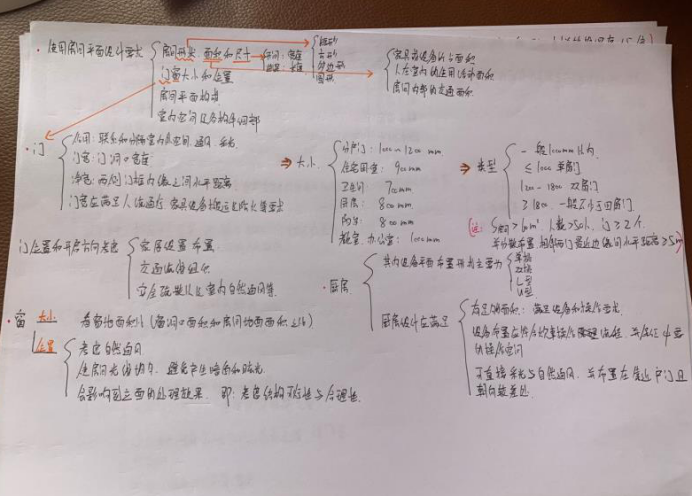 · 使用房间平面设计要求
房间形状 面积和尺寸
门窗大小和位置
房间平面构成
矩形
方形
多边形
圆形
家具或设备所占面积
人在室内的使用活动面积
房间内部的交通面积
· 门
作用：联系和分隔室内外空间 通风 采光
门宽：门洞口宽度
净宽：两侧门框内缘之间水平距离
⇒ 大小
分户门：1000~1200 mm
900 mm
卫生间 700 mm
厨房：800 mm
阳台：800 mm
教室、办公室：1000 mm
⇒ 类型
一般1000mm以内
≤1000 单扇门
1200~1800 双扇门
≥1800 一般不少于四扇门
房间>60m² 人数>50人 门≥2个
相邻两门最近边缘间水平距离≥5m
门位置和开启方向考虑
家具设置 布置
交通流线组织
安全疏散以及室内自然通风等
· 窗
大小
看窗地面积比（窗洞口面积和房间地面面积之比）
位置
考虑自然通风
使房间光线均匀，避免产生暗角和眩光
会影响到立面的处理效果，即：考虑结构可行性与合理性
· 厨房
其内设备平面布置形式主要为
单排
双排
L型
U型
厨房设计应满足
有足够面积：满足设备和操作要求
设备布置应符合炊事操作流程
的操作空间
可直接采光与自然通风，并布置在靠近户门且
朝向较差处